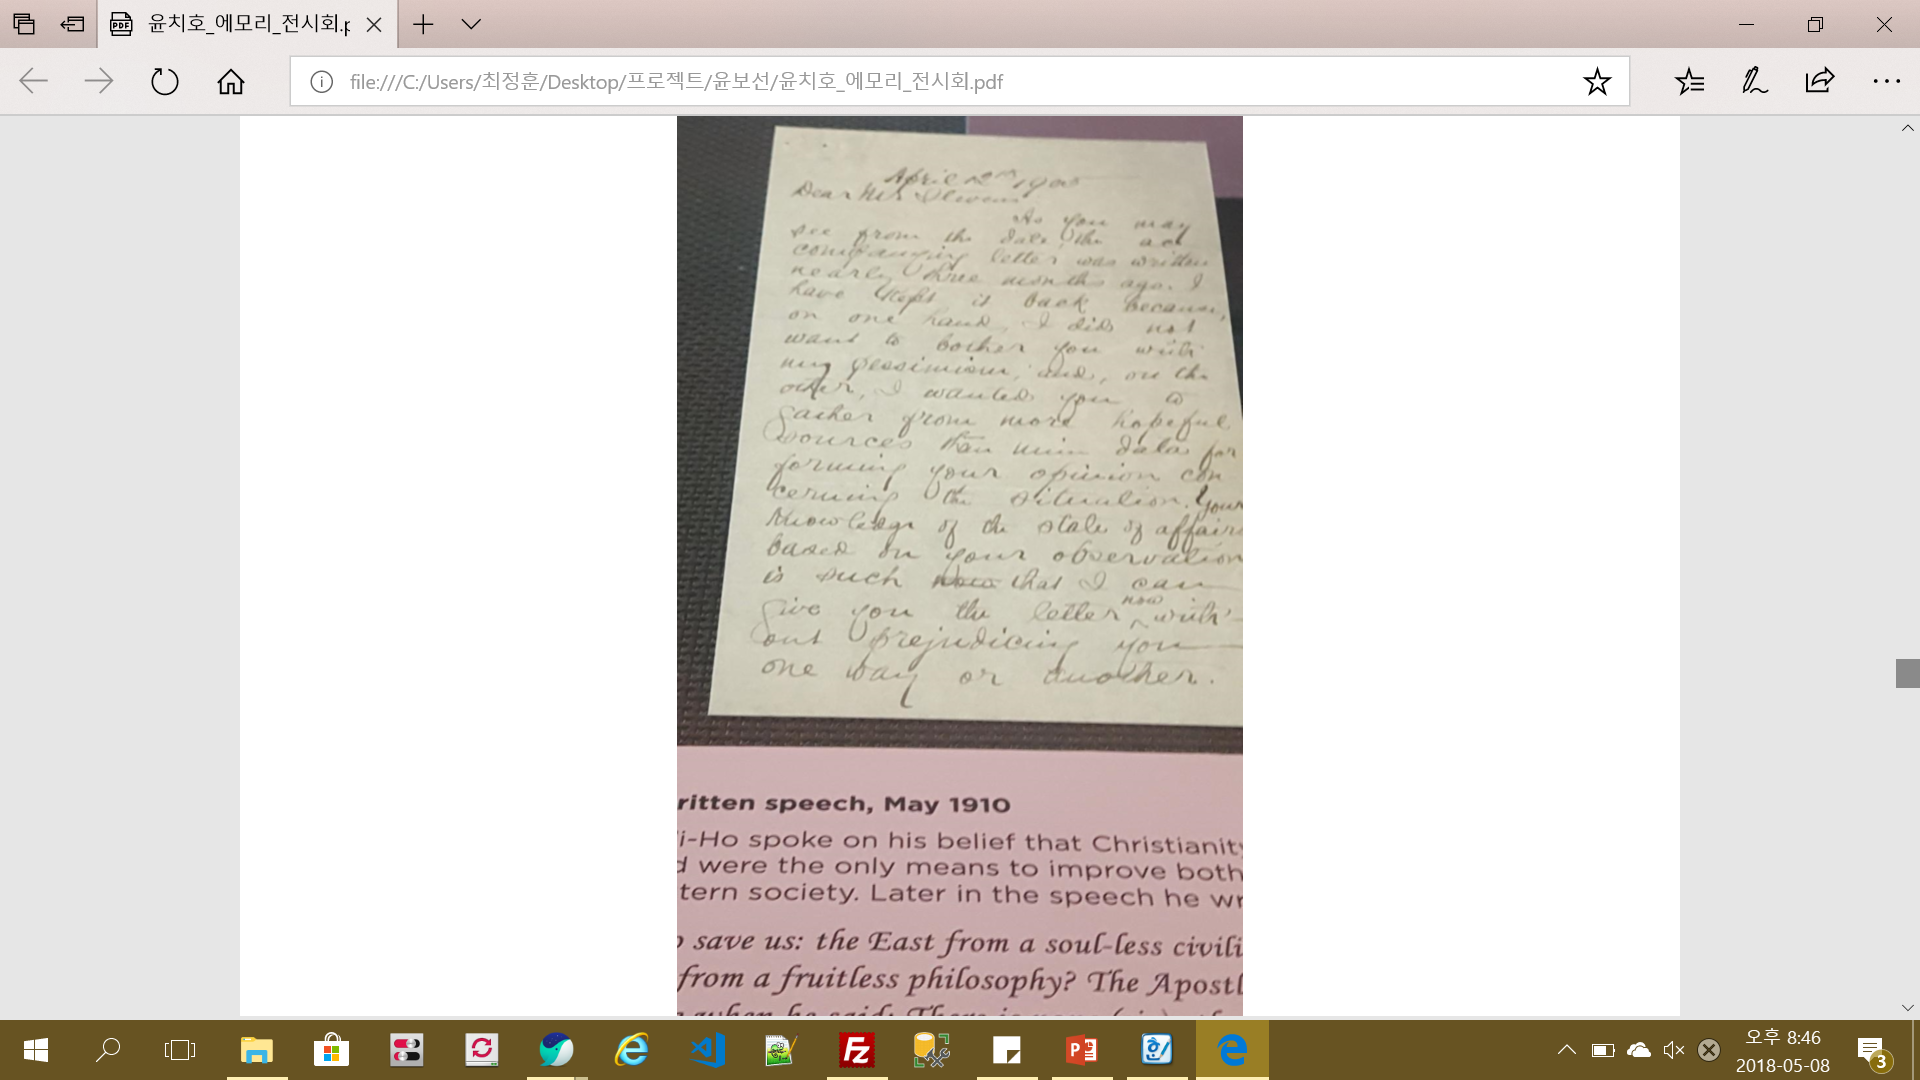 윤치호_에모리_전시회.p
file:///C:/Users/최정훈/Desktop/프로젝트/윤보선/윤치호_에모리_전시회.pdf
April 1905
Dear Mr Stevens
As you may
see from the date, the ac
companying letter was written
nearly three months ago. I
have kept it back because,
on one hand, I did not
want to bother you with
my pessimism, and, on the
other, I wanted you to
gather from more hopeful
sources than mine data for
forming your opinion con
cerning the situation. Your
knowledge of the state of affairs
based on your observation
is such that I can
give you the letter now with-
out prejudicing you
one way or another.
ritten speech, May 1910
i-Ho spoke on his belief that Christianity
d were the only means to improve both
tern society. Later in the speech he wr
o save us: the East from a soul-less civili
from a fruitless philosophy? The Apostl
when he said: There is none
오후 8:46
2018-05-08
3